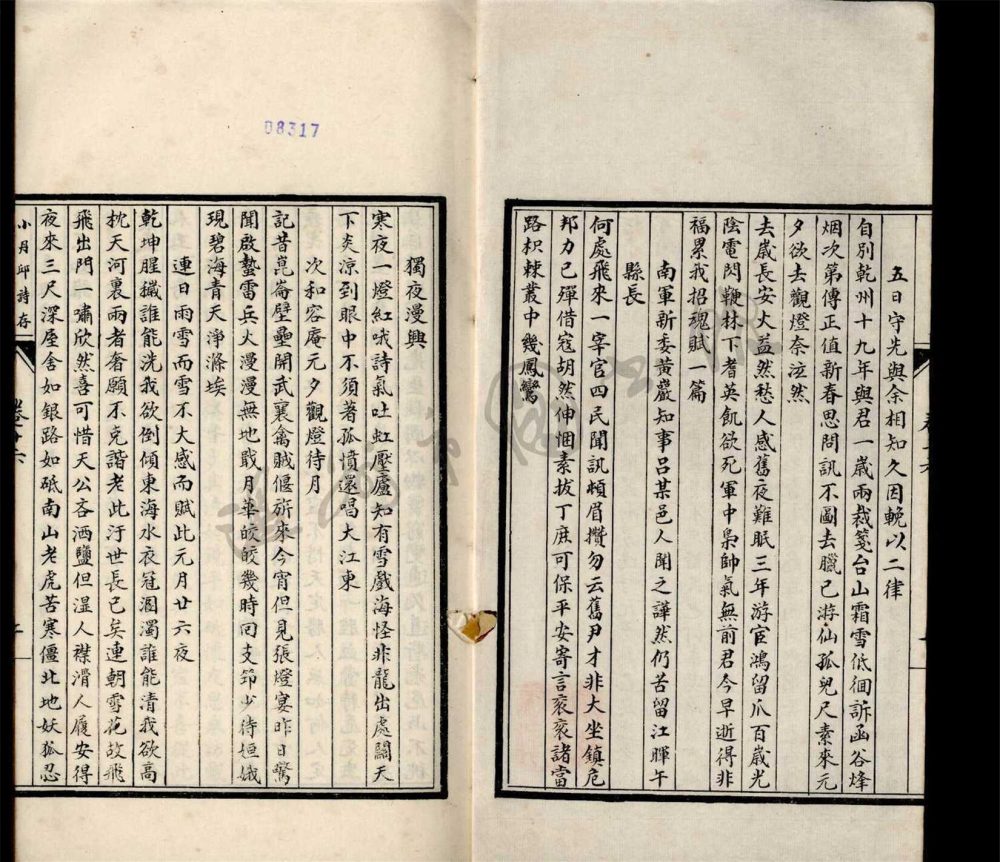 五日守先與余相知久因輓以二律
自別乾州十九年與君一歲兩裁箋台山霜雪低徊訴函谷烽
烟次第傳正值新春思問訊不圖去臘已游仙孤兒尺素來元
夕欲去觀燈奈泫然
去歲長安大益然愁人感舊夜難眠三年游宦鴻留爪百歲光
陰電閃鞭林下耆英飢欲死軍中梟帥氣無前君今早逝得非
福累我招魂賦一篇
南軍新委黃巖知事呂某邑人聞之譁然仍苦留江暉午
縣長
何處飛來一宰官四民聞訊頻眉攢勿云舊尹才非大坐鎮危
邦力已殫借寇胡然伸悃素拔丁庶可保平安寄言袞袞諸當
路枳棘叢中幾鳳鸞
08317
獨夜漫興
寒夜一燈紅哦詩氣吐虹壓廬知有雪戲海怪非龍出處關天
下炎涼到眼中不須著孤憤還唱大江東
次和容庵元夕觀燈待月
記昔崑崙壁壘開武襄禽賊偃旂來今宵但見張燈宴昨日驚
聞啟蟄雷兵火漫漫無地戢月華皎皎幾時回支筇少待姮娥
現碧海青天淨滌埃
連日雨雪而雪不大感而賦此元月廿六夜
乾坤腥穢誰能洗我欲倒傾東海水衣冠溷濁誰能清我欲高
枕天河裏兩者奢願不克諧老此汙世長已矣連朝雪花故飛
飛出門一嘯欣然喜可惜天公吝洒鹽但溼人襟滑人履安得
夜來三尺深屋舍如銀路如砥南山老虎苦寒僵北地妖狐忍
小月邱詩存